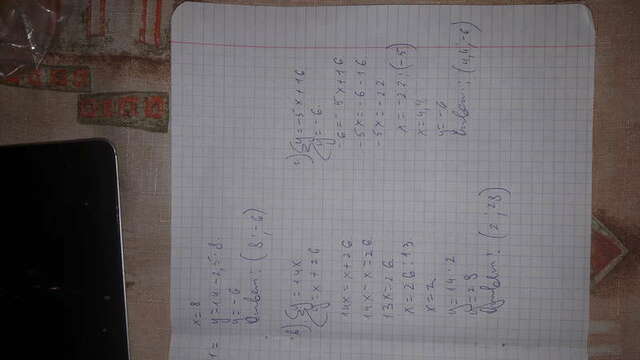 x=8
y=14-2,5·8
y=-6
Ответ: (8;-6)
в) {y=14x
y=x+26
14x=x+26
14x-x=26
13x=26
x=26:13
x=2
y=14·2
y=28
Ответ: (2;28)
г) {y=-5x+16
y=-6
-6=-5x+16
-5x=-6-16
-5x=-22
x=-22:(-5)
x=4,4
y=-6
Ответ: (4,4;-6)